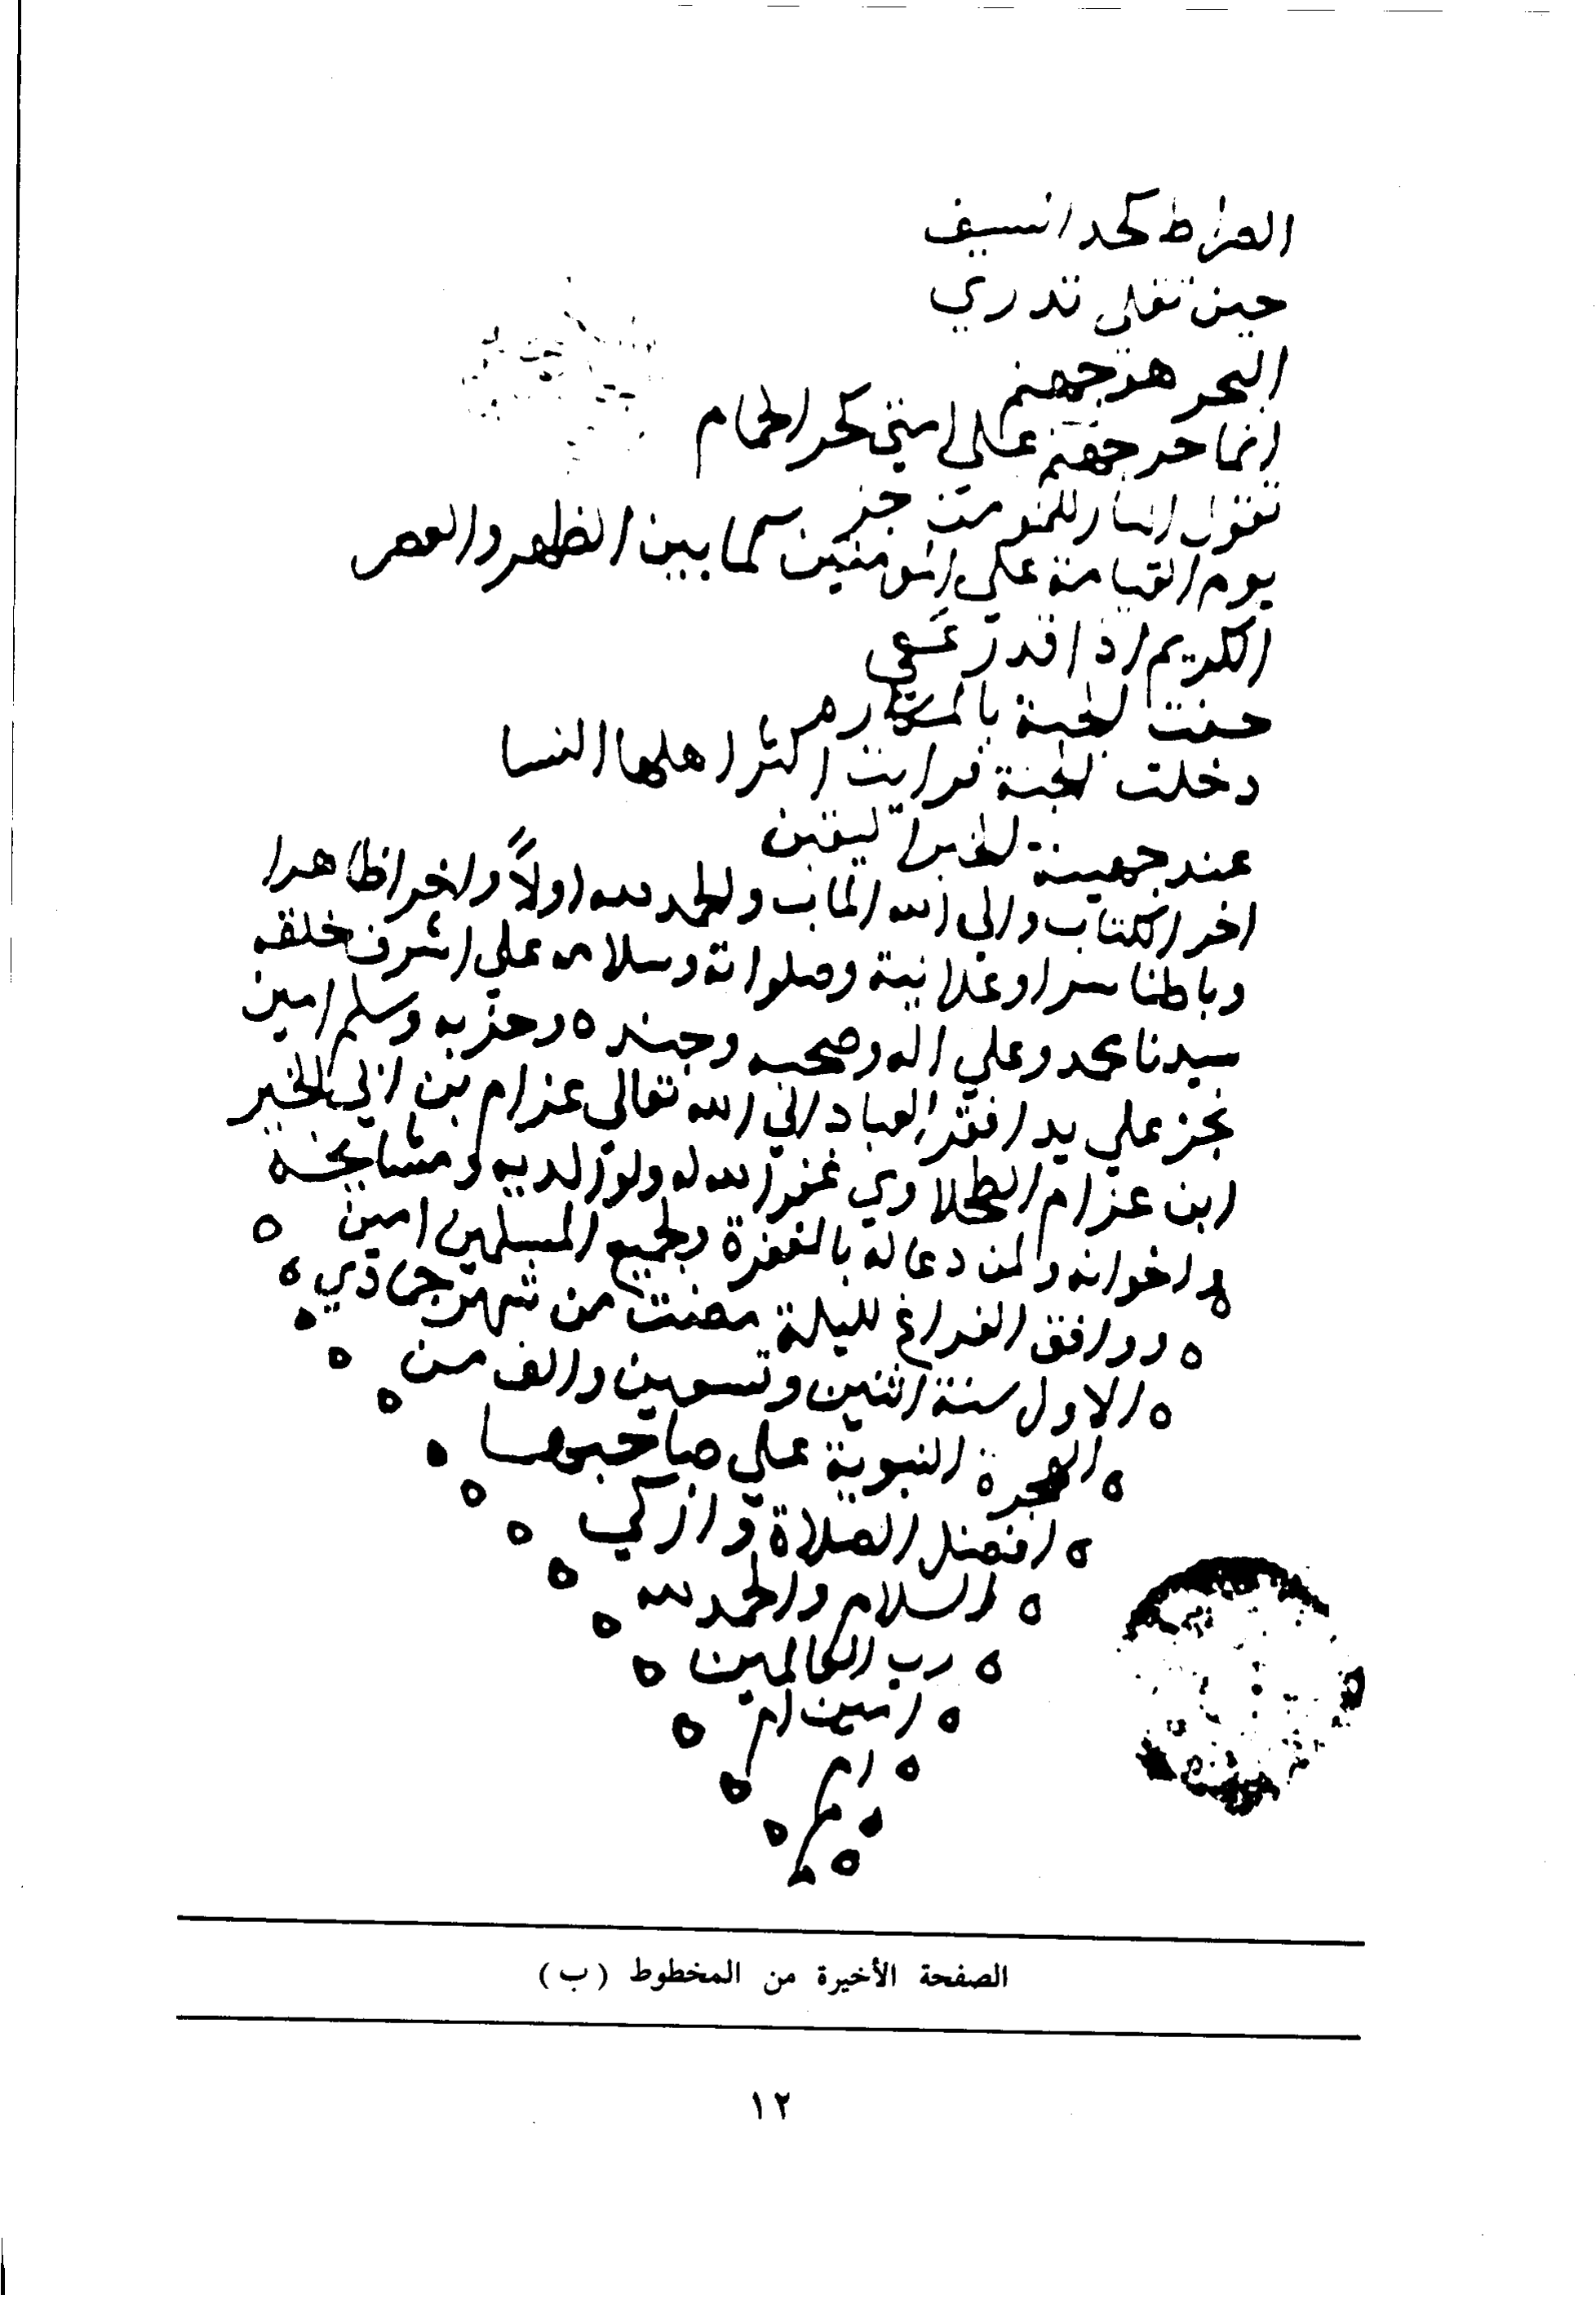 الصراط كحد السيف
حين تقلى تدري
البحر هو جهنم
انما حر جهنم على امتي كحر الحمام
تقول النار للمومن جز
يوم القيامة على المومنين كما بين الظهر والعصر
الكريم اذا قدر عفى
حفت الجنة بالمكاره
دخلت الجنة فرايت اكثر اهلها النسا
عند جهينة الخبر اليقين
اخر الكتاب والى الله الماب والحمد لله اولاً واخرا ظاهرا
وباطنا سرا وعلانية وصلواته وسلامه على اشرف خلقه
سيدنا محمد وعلي اله وصحبه وجنده وحزبه وسلم امين
نجز علي يد افقر العباد الى الله تعالى عزام بن ابي الخير
ابن عزام الطحلاوي غفر الله له ولوالديه ومشايخه
واخوانه ولمن دعا له بالمغفرة ولجميع المسلمين امين ه
ه ووافق الفراغ لليلة مضت من شهر جمادي ه
ه الاول سنة اثنين وتسعين والف من ه
ه الهجرة النبوية على صاحبها ه
ه افضل الصلاة وازكي ه
ه السلام والحمد لله ه
ه رب العالمين ه
ه امين ام ه
ه ام ه
ه م ه
ه م
الصفحة الأخيرة من المخطوط (ب)
١٢